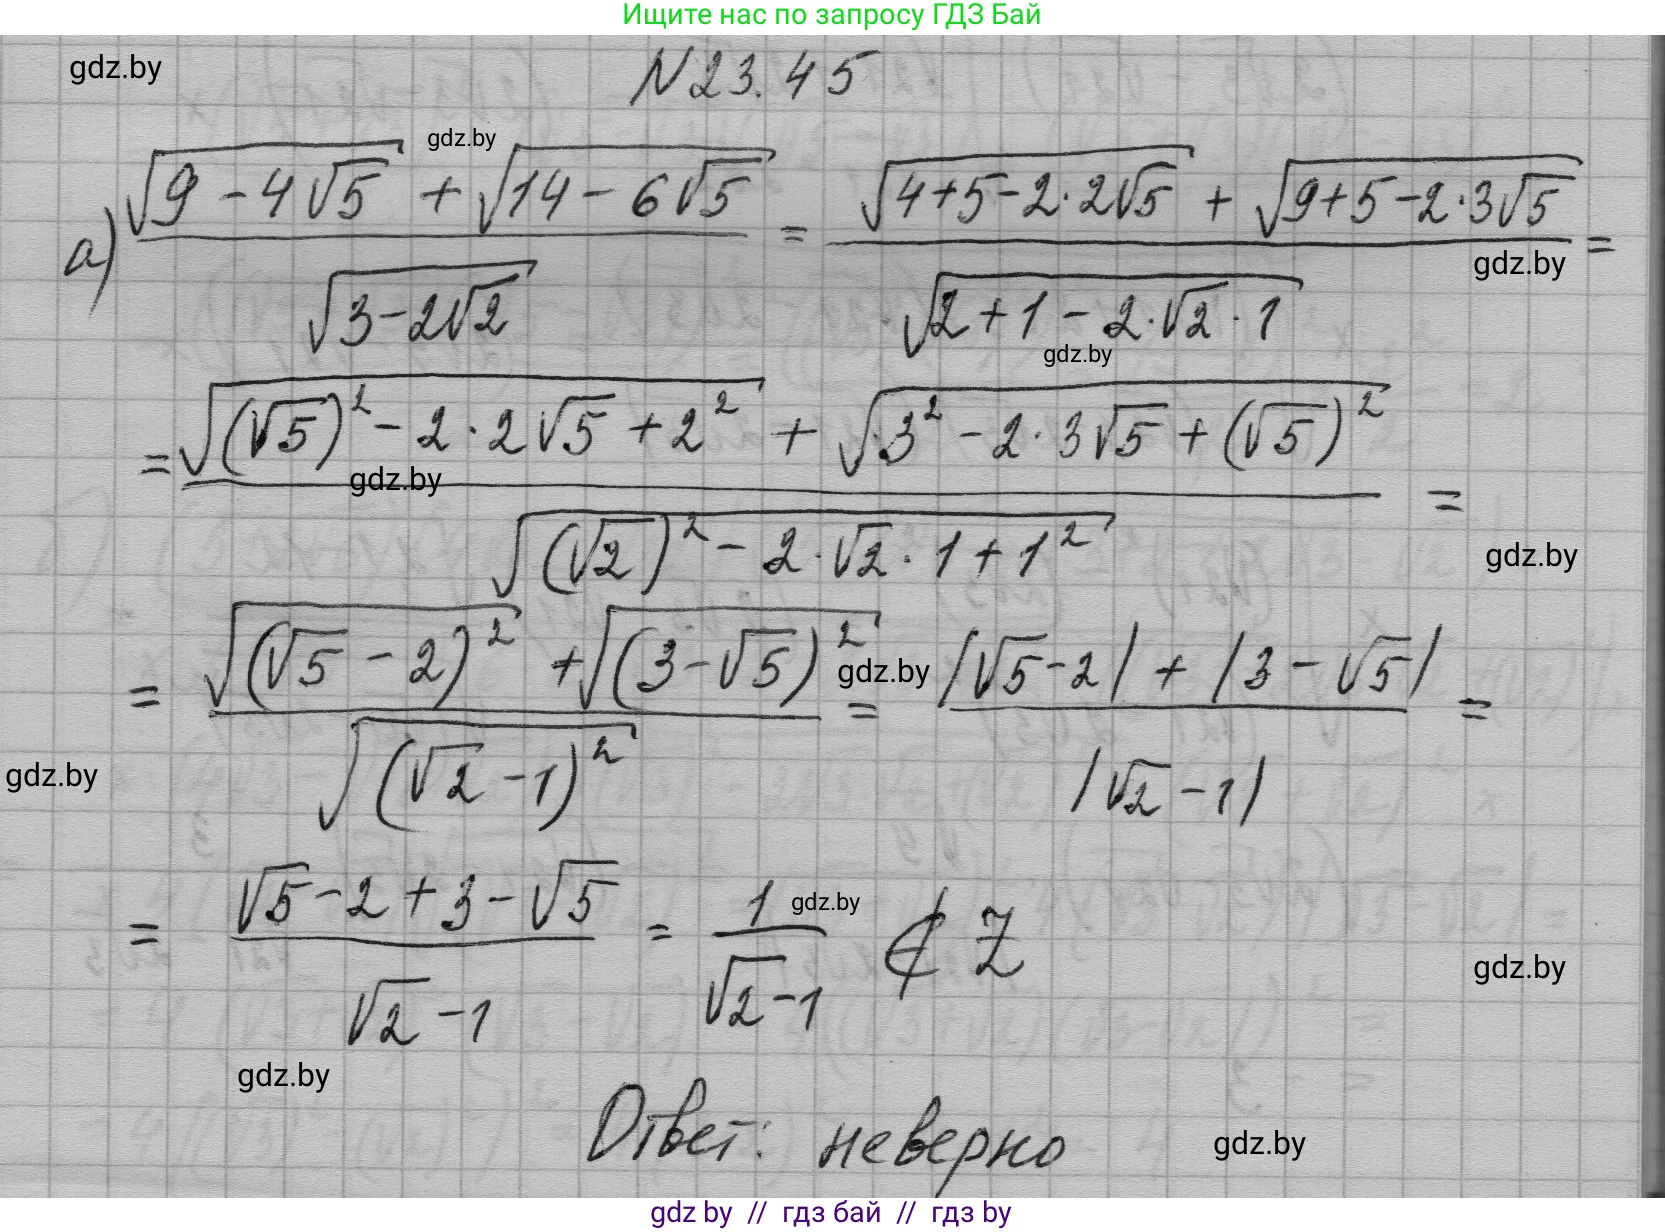 Ищите нас по запросу ГДЗ Бай
gdz.by
N23.45
gdz.by
а) (√(9 - 4√5) + √(14 - 6√5)) / √(3 - 2√2) = (√(4+5-2·2√5) + √(9+5-2·3√5)) / √(2+1-2·√2·1) =
gdz.by
gdz.by
= (√((√5)² - 2·2√5 + 2²) + √(3² - 2·3√5 + (√5)²)) / √((√2)² - 2·√2·1 + 1²) =
gdz.by
gdz.by
= (√((√5 - 2)²) + √((3 - √5)²)) / √((√2 - 1)²) = (|√5 - 2| + |3 - √5|) / |√2 - 1| =
gdz.by
gdz.by
= (√5 - 2 + 3 - √5) / (√2 - 1) = 1 / (√2 - 1) ∉ Z
gdz.by
gdz.by
gdz.by
Ответ: неверно
gdz.by
gdz by // гдз бай // гдз by